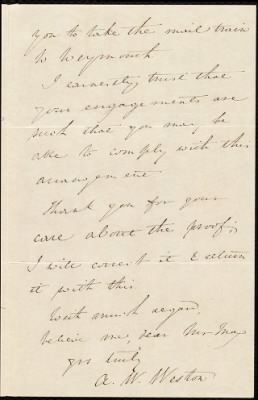 you to take the mail train
to Weymouth
I earnestly trust that
your engagements are
such that you may be
able to comply with this
arrangement
Thank you for your
care about the proof;
I will correct it & return
it with this.
With much regard,
believe me, dear Mr May
yrs truly
A. W. Weston